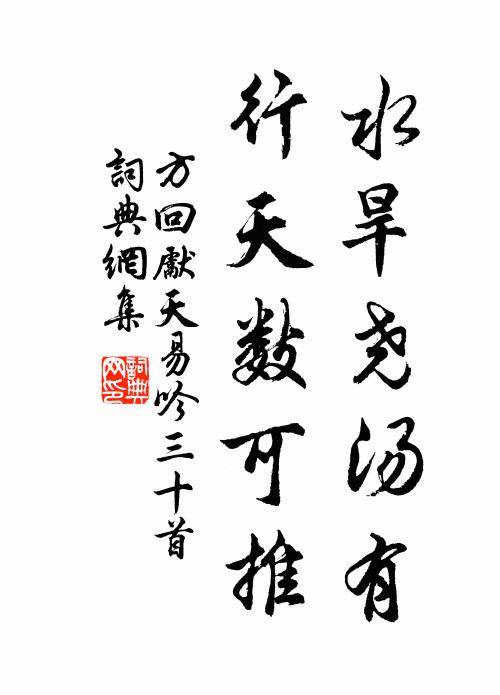 水旱尧汤有
行天数可推
方回獻天易吟三十首
詞典網集
詞典網印